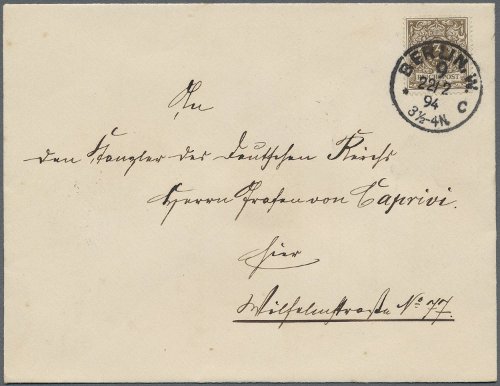 BERLIN. W.
9
22/2
94
3½-4N.
* C
REICHSPOST
An
den Kanzler des Deutschen Reichs
Herrn Grafen von Caprivi.
hier
Wilhelmstraße No 77.